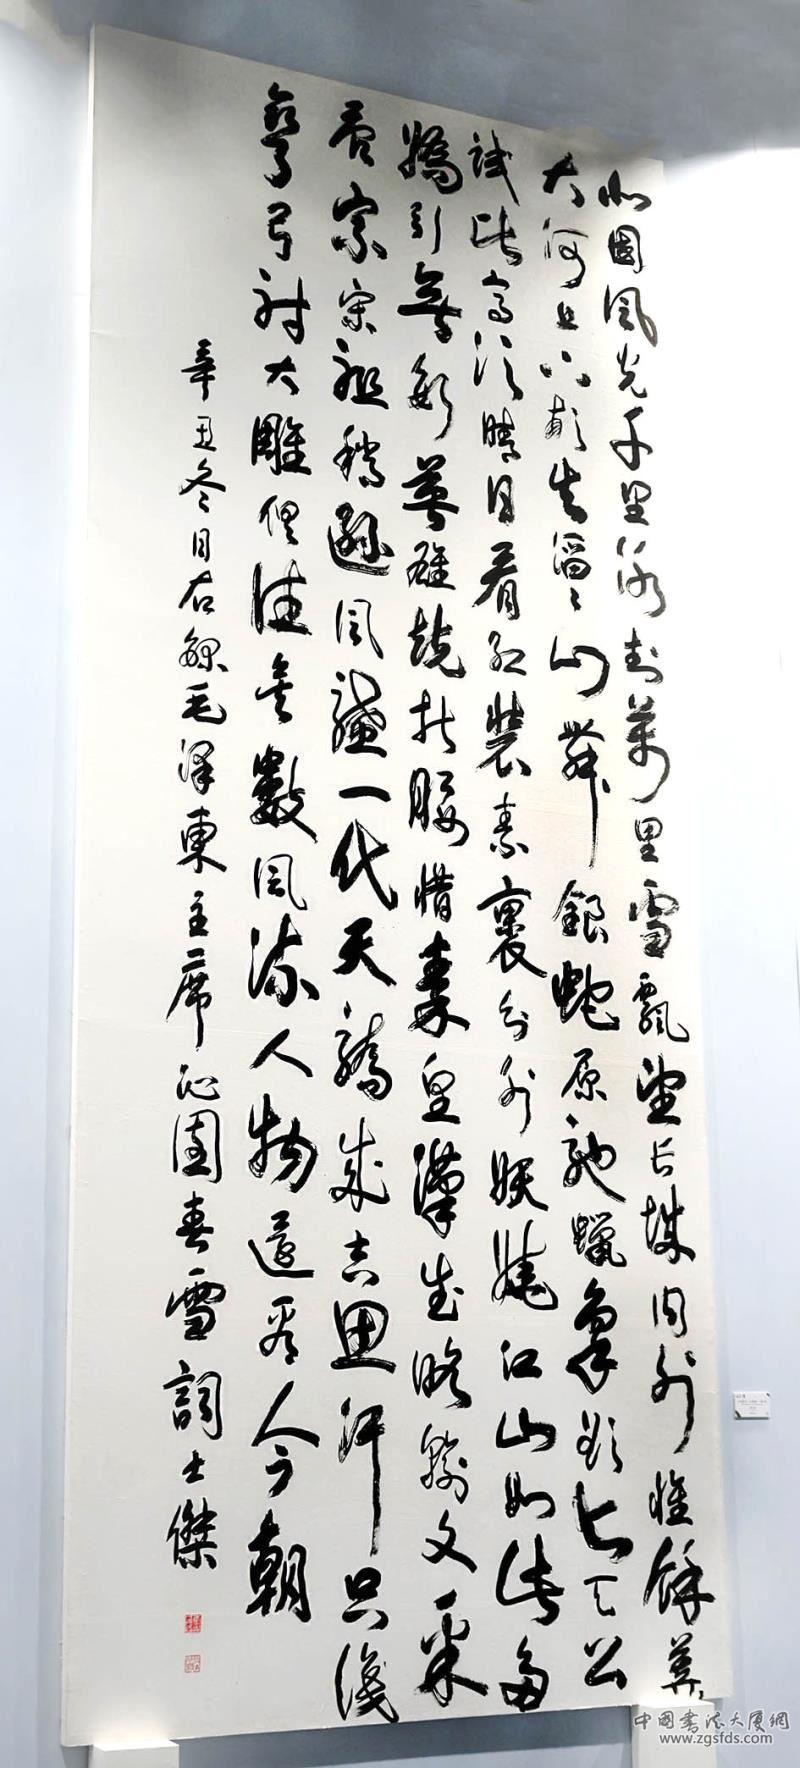 北國風光千里冰封萬里雪飄望長城内外惟餘莽〻
大河上下頓失滔〻山舞銀蛇原馳蠟象欲与天公
試比高須晴日看紅裝素裹分外妖嬈江山如此多
嬌引無數英雄競折腰惜秦皇漢武略輸文采
唐宗宋祖稍遜風騷一代天驕成吉思汗只識
彎弓射大雕俱往矣數風流人物還看今朝
辛丑冬月右録毛澤東主席沁園春雪詞士傑
中國書法大廈網
www.zgsfds.com